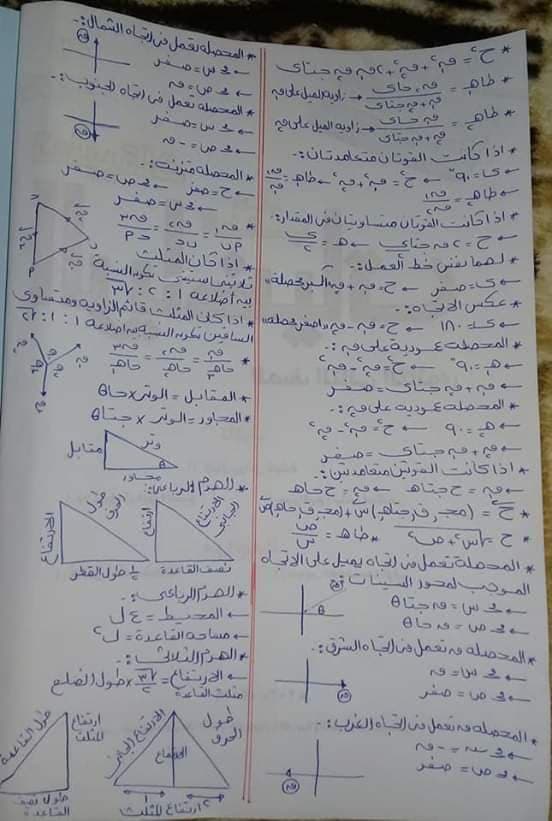 * ح² = ق₁² + ق₂² + ٢ ق₁ ق₂ جتاى
* طاهـ = ق₂ جاى / ق₁ + ق₂ جتاى ← زاوية الميل على ق₁
* طاهـ = ق₁ جاى / ق₂ + ق₁ جتاى ← زاوية الميل على ق₂
* اذا كانت القوتان متعامدتان:-
← ى = ٩٠° ← ح² = ق₁² + ق₂² ← طاهـ = ق₂ / ق₁
← طاهـ = ق₁ / ق₂
* اذا كانت القوتان متساويتان فى المقدار:-
← ح = ٢ ق جتا ى/٢ ← هـ = ى/٢
* لهما نفس خط العمل:-
← ى = صفر ← ح = ق₁ + ق₂
* عكس الاتجاه:-
← ى = ١٨٠ ← ح = ق₁ - ق₂
* المحصلة عمودية على ق₁:-
← هـ = ٩٠° ← ح² = ق₂² - ق₁²
← ق₁ + ق₂ جتاى = صفر
* المحصلة عمودية على ق₂:-
← هـ = ٩٠ ← ح² = ق₁² - ق₂²
← ق₂ + ق₁ جتاى = صفر
* اذا كانت القوتين متعامدتين:-
← ق₁ = ح جتاهـ ← ق₂ = ح جاهـ
* ح = √(س² + ص²) * طاهـ = ص / س
* المحصلة تعمل فى اتجاه يميل على الاتجاه
الموجب لمحور السينات
← مجـ س = ق جتا θ
← مجـ ص = ق جا θ
θ
* المحصلة ق تعمل فى اتجاه الشرق:-
← مجـ س = ق
← مجـ ص = صفر
* المحصلة ق تعمل فى اتجاه الغرب:-
← مجـ س = - ق
← مجـ ص = صفر
* المحصلة تعمل فى اتجاه الشمال:-
← مجـ س = صفر
← مجـ ص = ق
* المحصلة تعمل فى اتجاه الجنوب:-
← مجـ س = صفر
← مجـ ص = - ق
* المحصلة متزنة:-
← ح = صفر ← مجـ ص = صفر
← مجـ س = صفر
* اذا كان المثلث
ثلاثينى ستينى تكون النسبة
بين أضلاعه ١ : ٢ : √٣
* اذا كان المثلث قائم الزاوية ومتساوى
الساقين تكون النسبة بين أضلاعه ١ : ١ : √٢
* ق₁ / جاهـ₁ = ق₂ / جاهـ₂ = ق₃ / جاهـ₃
* المقابل = الوتر × جا θ
* المجاور = الوتر × جتا θ
مقابل
وتر
θ
مجاور
* الهرم الرباعى:-
الارتفاع
طول الحرف
½ طول القطر
ارتفاع
الارتفاع الجانبى
نصف القاعدة
* الهرم الرباعى:-
← المحيط = ٤ ل
← مساحة القاعدة = ل²
* الهرم الثلاثى:-
← الارتفاع = √٣/٢ × طول الضلع
مثلث القاعدة
طول القاعدة
ارتفاع المثلث
طول نصف القاعدة
الارتفاع الجانبى
الارتفاع
طول الحرف
١
٢
ارتفاع المثلث